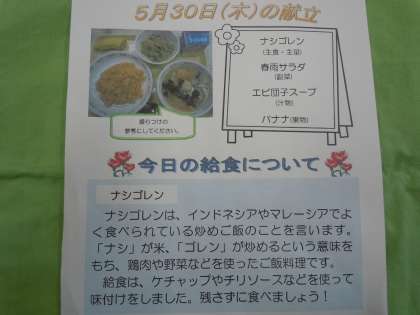 5月30日（木）の献立
ナシゴレン
（主食・主菜）
春雨サラダ
（副菜）
エビ団子スープ
（汁物）
バナナ（果物）
盛りつけの
参考にしてください。
今日の給食について
ナシゴレン
ナシゴレンは、インドネシアやマレーシアでよ
く食べられている炒めご飯のことを言います。
「ナシ」が米、「ゴレン」が炒めるという意味を
もち、鶏肉や野菜などを使ったご飯料理です。
給食は、ケチャップやチリソースなどを使って
味付けをしました。残さずに食べましょう！